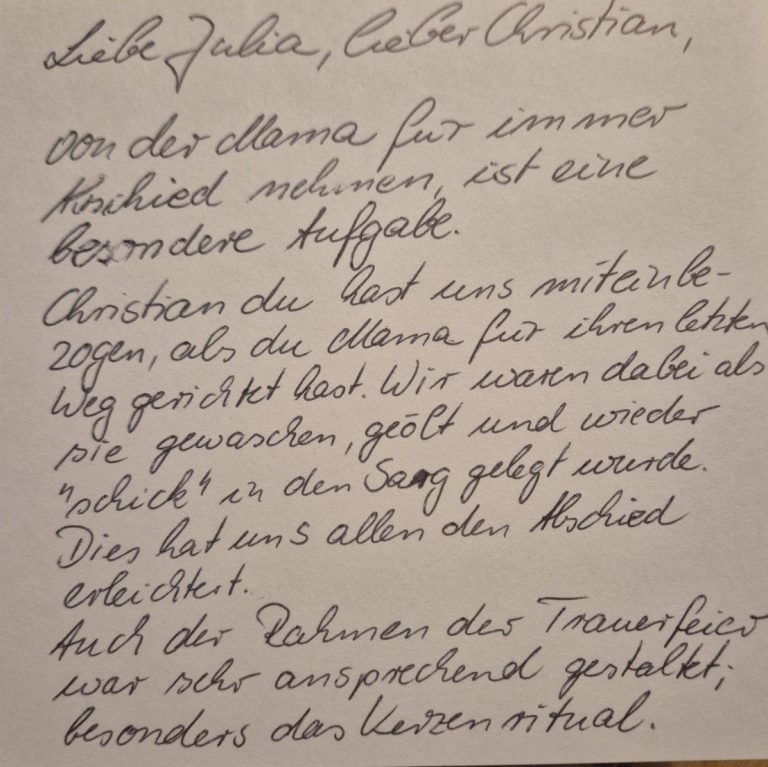 Liebe Julia, lieber Christian,
von der Mama für immer
Abschied nehmen, ist eine
besondere Aufgabe.
Christian du hast uns miteinbe-
zogen, als du Mama für ihren letzten
Weg gerichtet hast. Wir waren dabei als
sie gewaschen, geölt und wieder
"schick" in den Sarg gelegt wurde.
Dies hat uns allen den Abschied
erleichtert.
Auch der Rahmen der Trauerfeier
war sehr ansprechend gestaltet;
besonders das Kerzenritual.